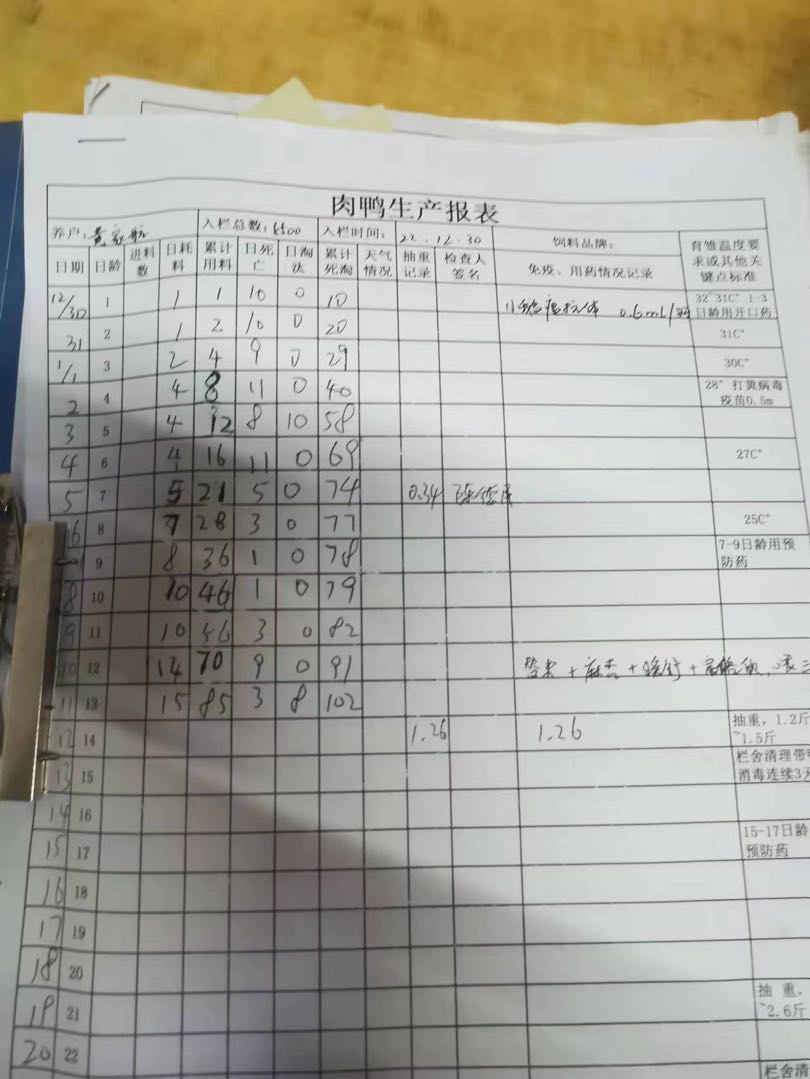 肉鸭生产报表
养户: 入栏总数: 6500 入栏时间: 22.12.30 饲料品牌: 育雏温度要求或其他关键点标准
日期 日龄 进料数 日耗料 累计用料 日死亡 日淘汰 累计死淘 天气情况 抽重记录 检查人签名 免疫、用药情况记录
12/30 1 1 1 10 0 10 0.6ml/ 32°31C° 1-3日龄用开口药
31 2 1 2 10 0 20 31C°
1/1 3 2 4 9 0 29 30C°
2 4 4 8 11 0 40 28° 打黄病毒疫苗0.5m
3 5 4 12 8 10 58
4 6 4 16 11 0 69 27C°
5 7 5 21 5 0 74 0.34
6 8 7 28 3 0 77 25C°
9 8 36 1 0 78 7-9日龄用预防药
8 10 10 46 1 0 79
9 11 10 56 3 0 82
10 12 14 70 9 0 91
11 13 15 85 3 8 102
12 14 1.26 1.26 抽重，1.2斤~1.5斤
13 15 栏舍清理带 消毒连续3
14 16
15 17 15-17日龄 预防药
16 18
17 19
18 20
19 21 抽重， ~2.6斤
20 22
栏舍清